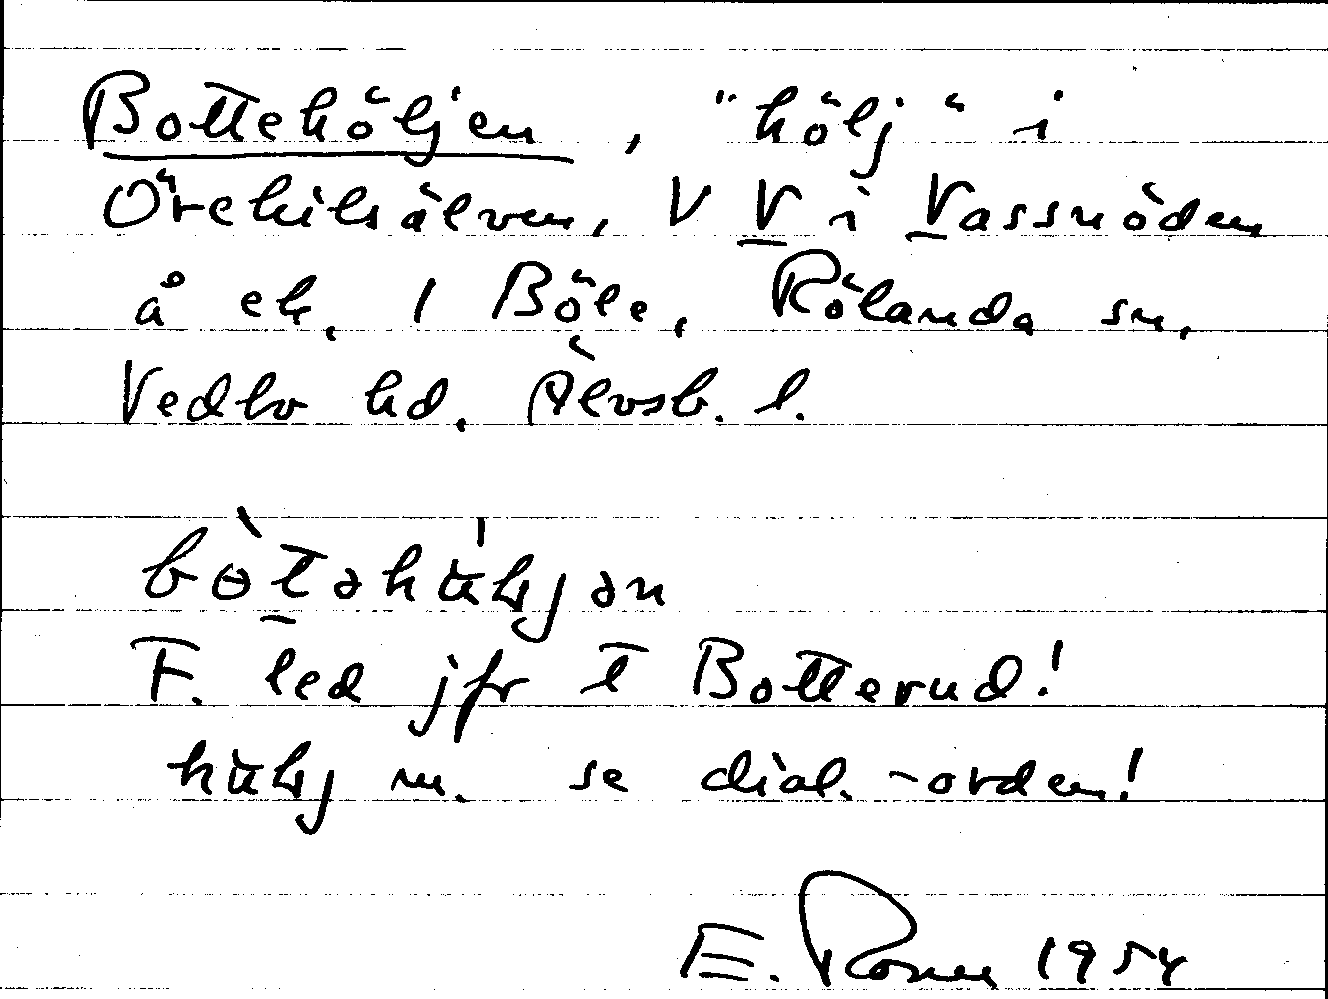 Bottehöljen, "hölj" i
Örekilsälven, V V i Vassnöden
å ek. 1 Böle, Rölanda sn,
Vedbo hd. Älvsb. l.
F. led jfr t Botterud!
m. se dial.-orden!
E. 1954